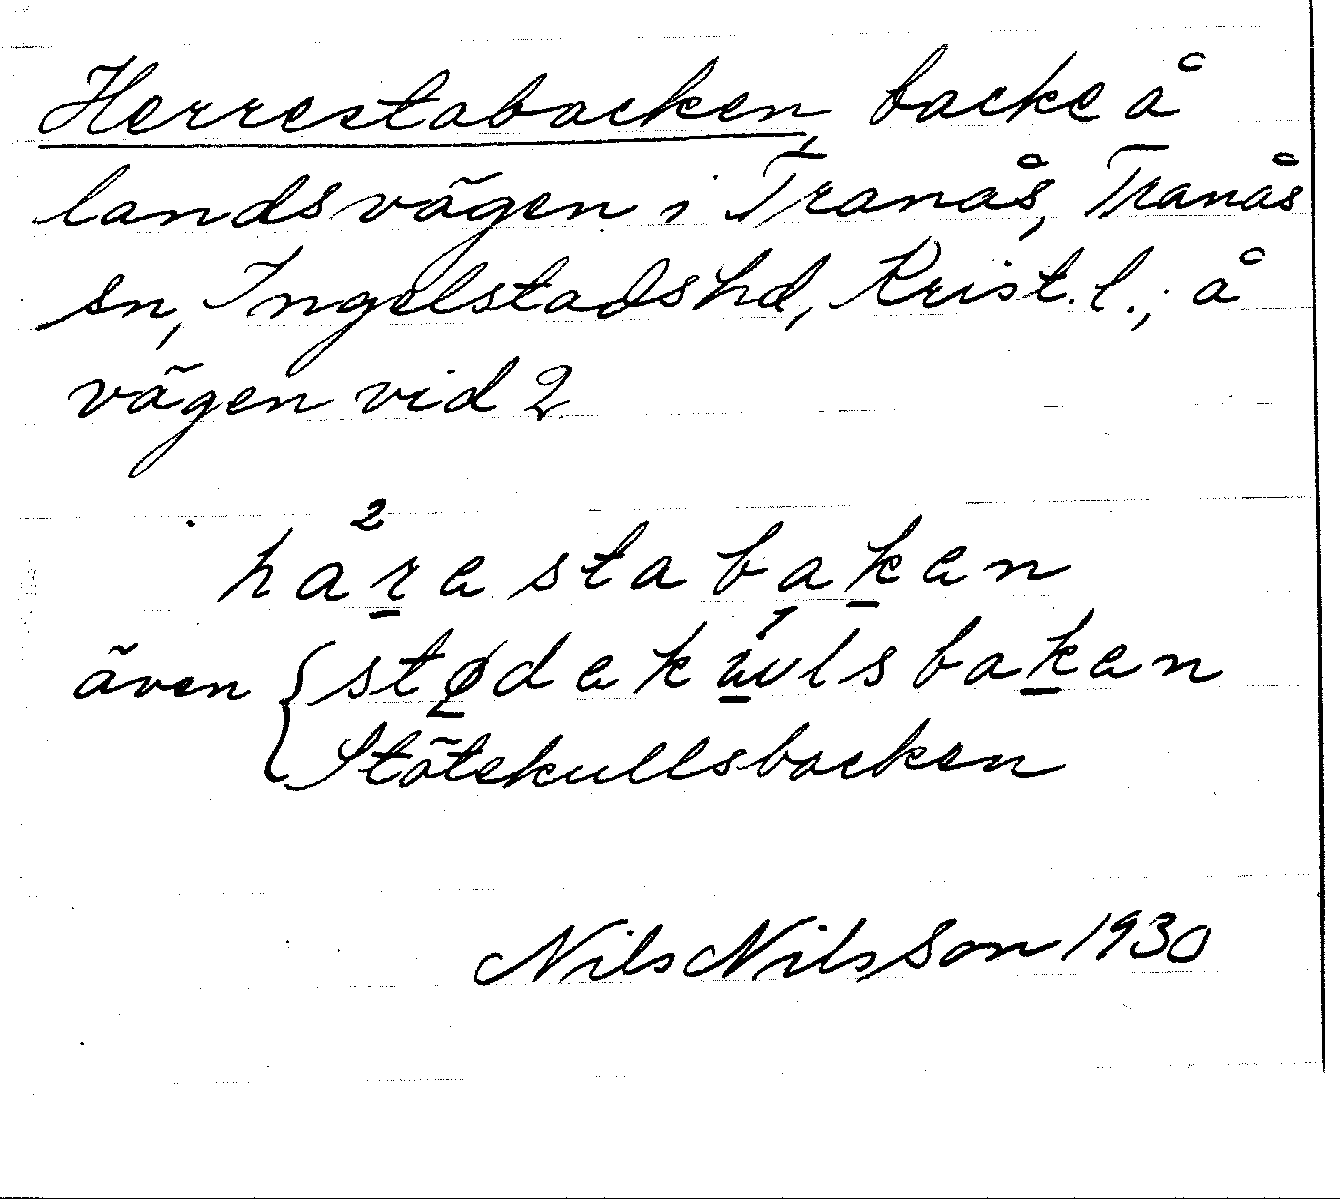 Herrestabacken, backe å
landsvägen i Tranås, Tranås
sn, Ingelstads hd, Krist. l.; å
vägen vid 2
2
harestabaken
även { stødekuvlsbaken
Stötekullsbacken
Nils Nilsson 1930